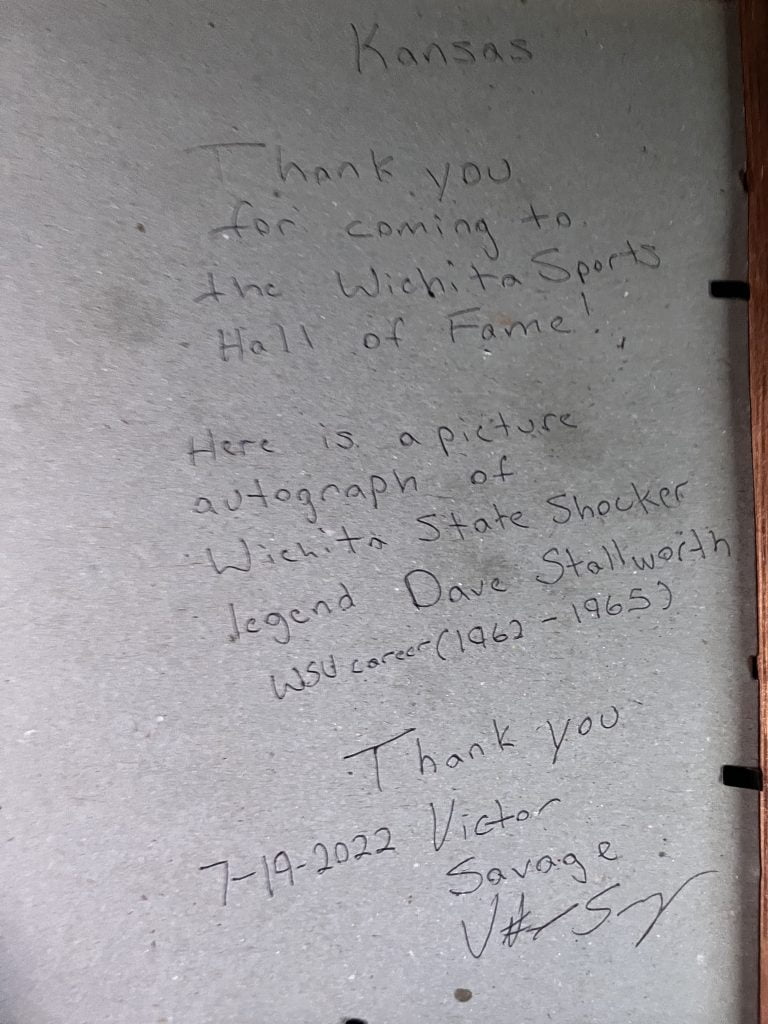 Kansas
Thank you
for coming to
the Wichita Sports
Hall of Fame!
Here is a picture
autograph of
Wichita State Shocker
legend Dave Stallworth
WSU career (1962 - 1965)
Thank you
7-19-2022 Victor
Savage